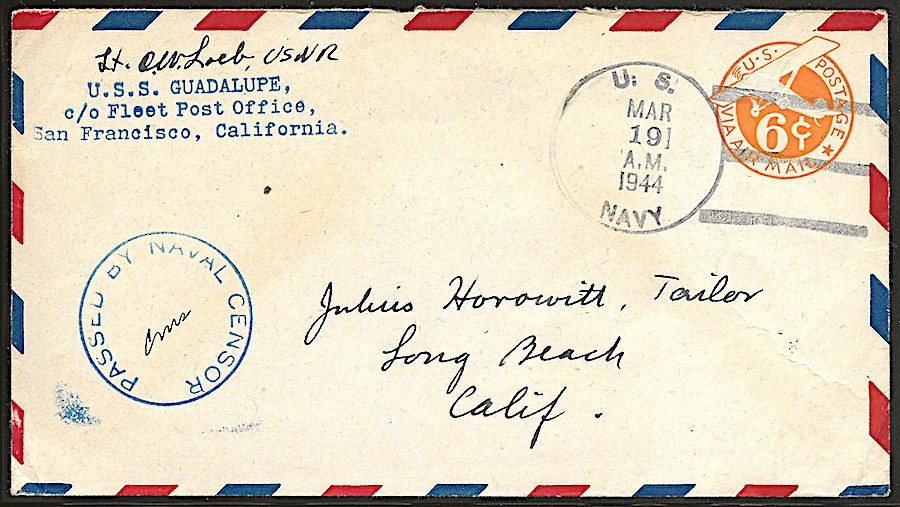 Lt. O.W. Loeb, USNR
U.S.S. GUADALUPE,
c/o Fleet Post Office,
San Francisco, California.
U. S.
MAR
191
A.M.
1944
NAVY
U.S. POSTAGE
6¢
VIA AIR MAIL
PASSED BY NAVAL CENSOR
Julius Horowitt, Tailor
Long Beach
Calif.